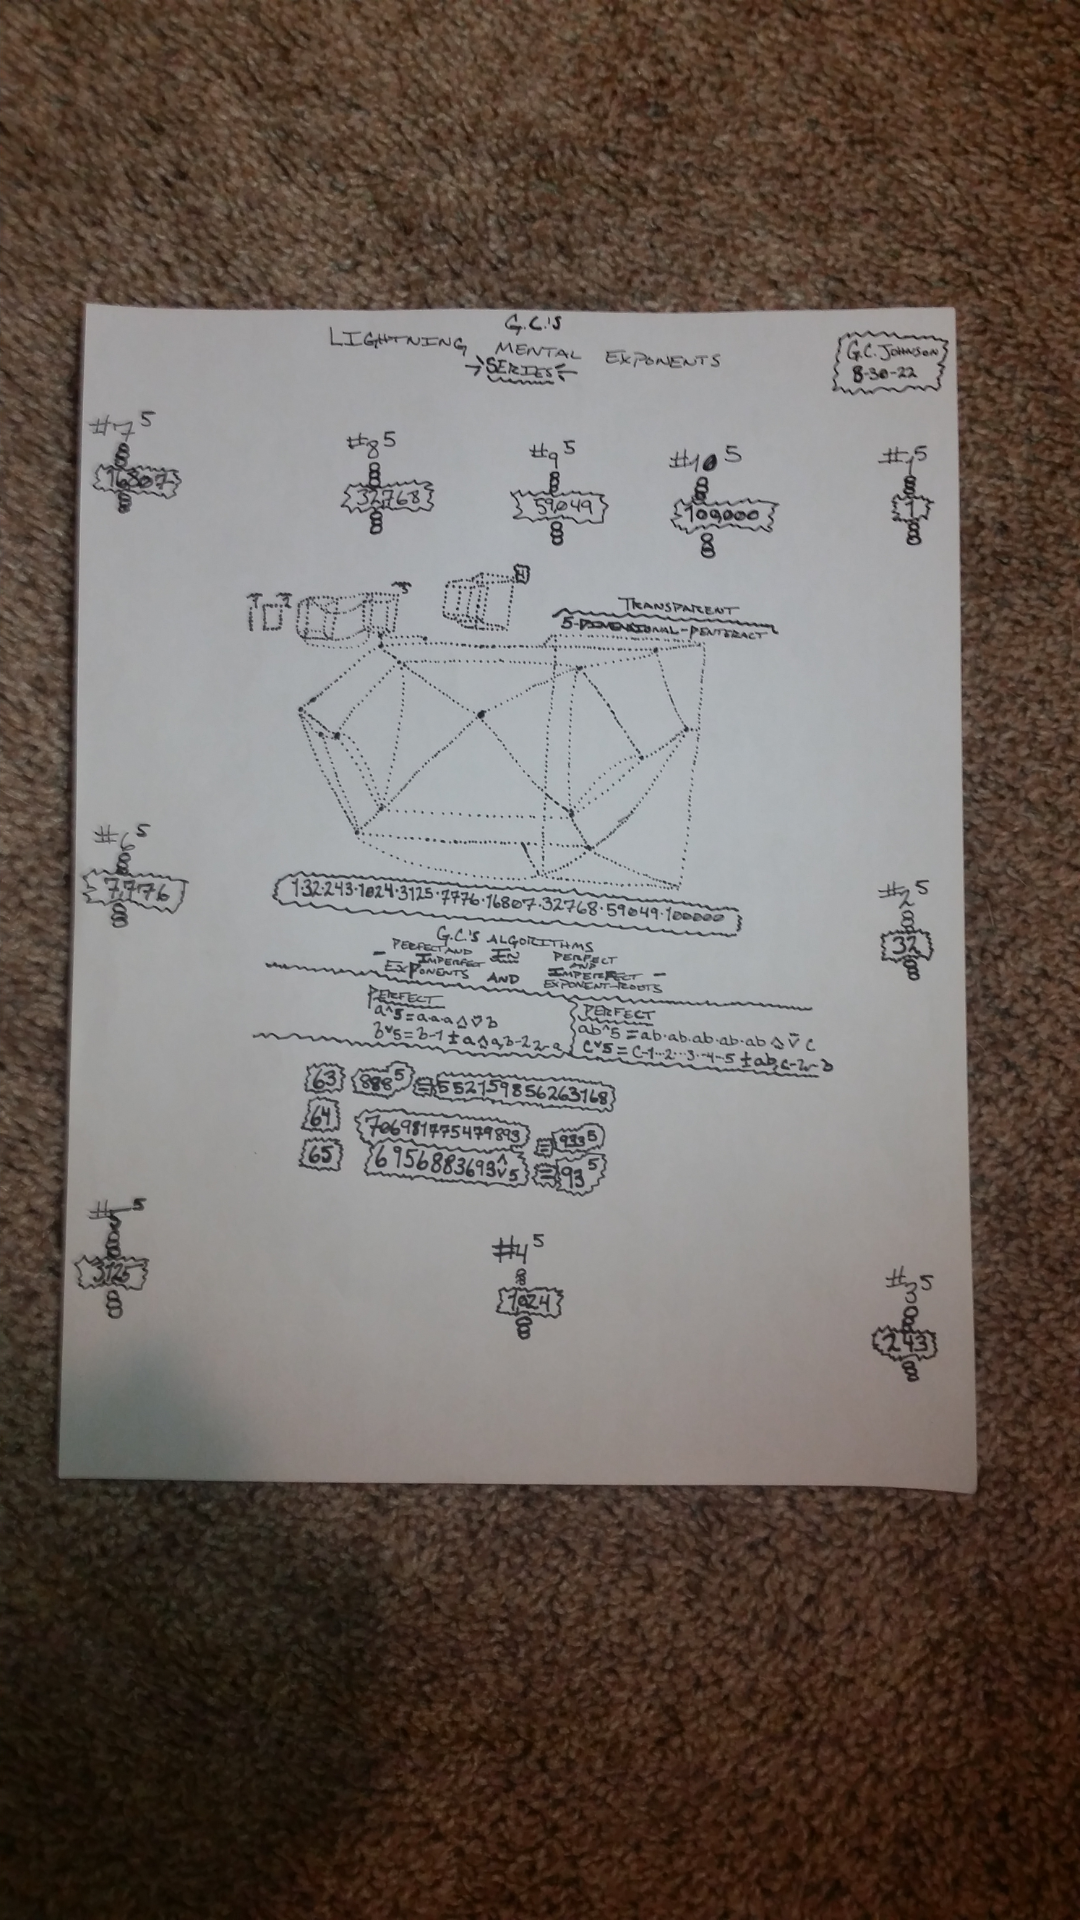 G.C.'S
LIGHTNING MENTAL EXPONENTS
→SERIES←
G.C. JOHNSON
8-30-22
#7^5
16807
#8^5
32,768
#9^5
59,049
#10^5
100,000
#1^5
1
1 2 3 4
TRANSPARENT
5-DIMENSIONAL-PENTERACT
#6^5
7,776
#2^5
32
1·32·243·1024·3125·7776·16807·32768·59049·100000
G.C.'S ALGORITHMS
- PERFECT AND IMPERFECT EXPONENTS
IN
AND
PERFECT AND IMPERFECT EXPONENT-ROOTS -
PERFECT
a^5=a·a·a
PERFECT
ab^5=ab·ab·ab·ab·ab
63 888^5≡552159856263168
64 706981775479893≡933^5
65 6956883693 5≡93^5
#5
3125
#4^5
1024
#3^5
243